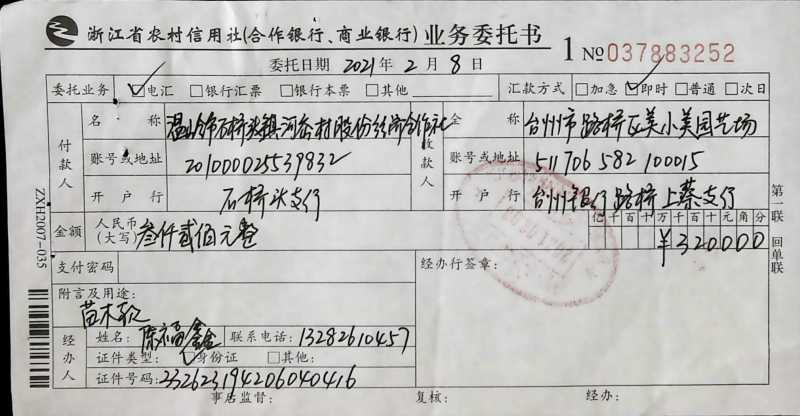 浙江省农村信用社(合作银行、商业银行) 业务委托书 1 №037883252
委托日期 2021年 2 月 8 日
委托业务 电汇 银行汇票 银行本票 其他 汇款方式 加急 即时 普通 次日
付款人 名称 温岭市石桥头镇河岙村股份经济合作社 收款人 全称 台州市路桥区美小美园艺场
账号或地址 201000025539832 账号或地址 511706582100015
开户行 石桥头支行 开户行 台州银行路桥上蔡支行
金额 人民币(大写) 叁仟贰佰元整 亿千百十万千百十元角分
¥320000
支付密码 经办行签章:
附言及用途:
苗木款
经办人 姓名: 陈福鑫 联系电话: 13282610457
证件类型: 身份证 其他:
证件号码: 332623194206040416
事后监督: 复核: 经办:
ZXH2007-035
第一联 回单联